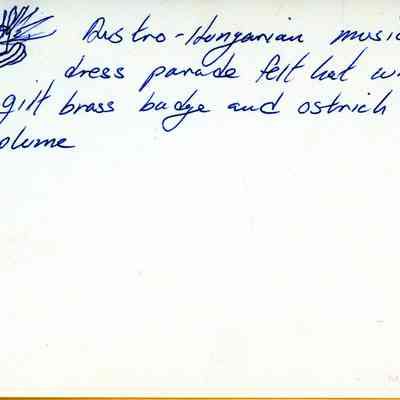 Austro-Hungarian music
dress parade felt hat w
gilt brass badge and ostrich
plume